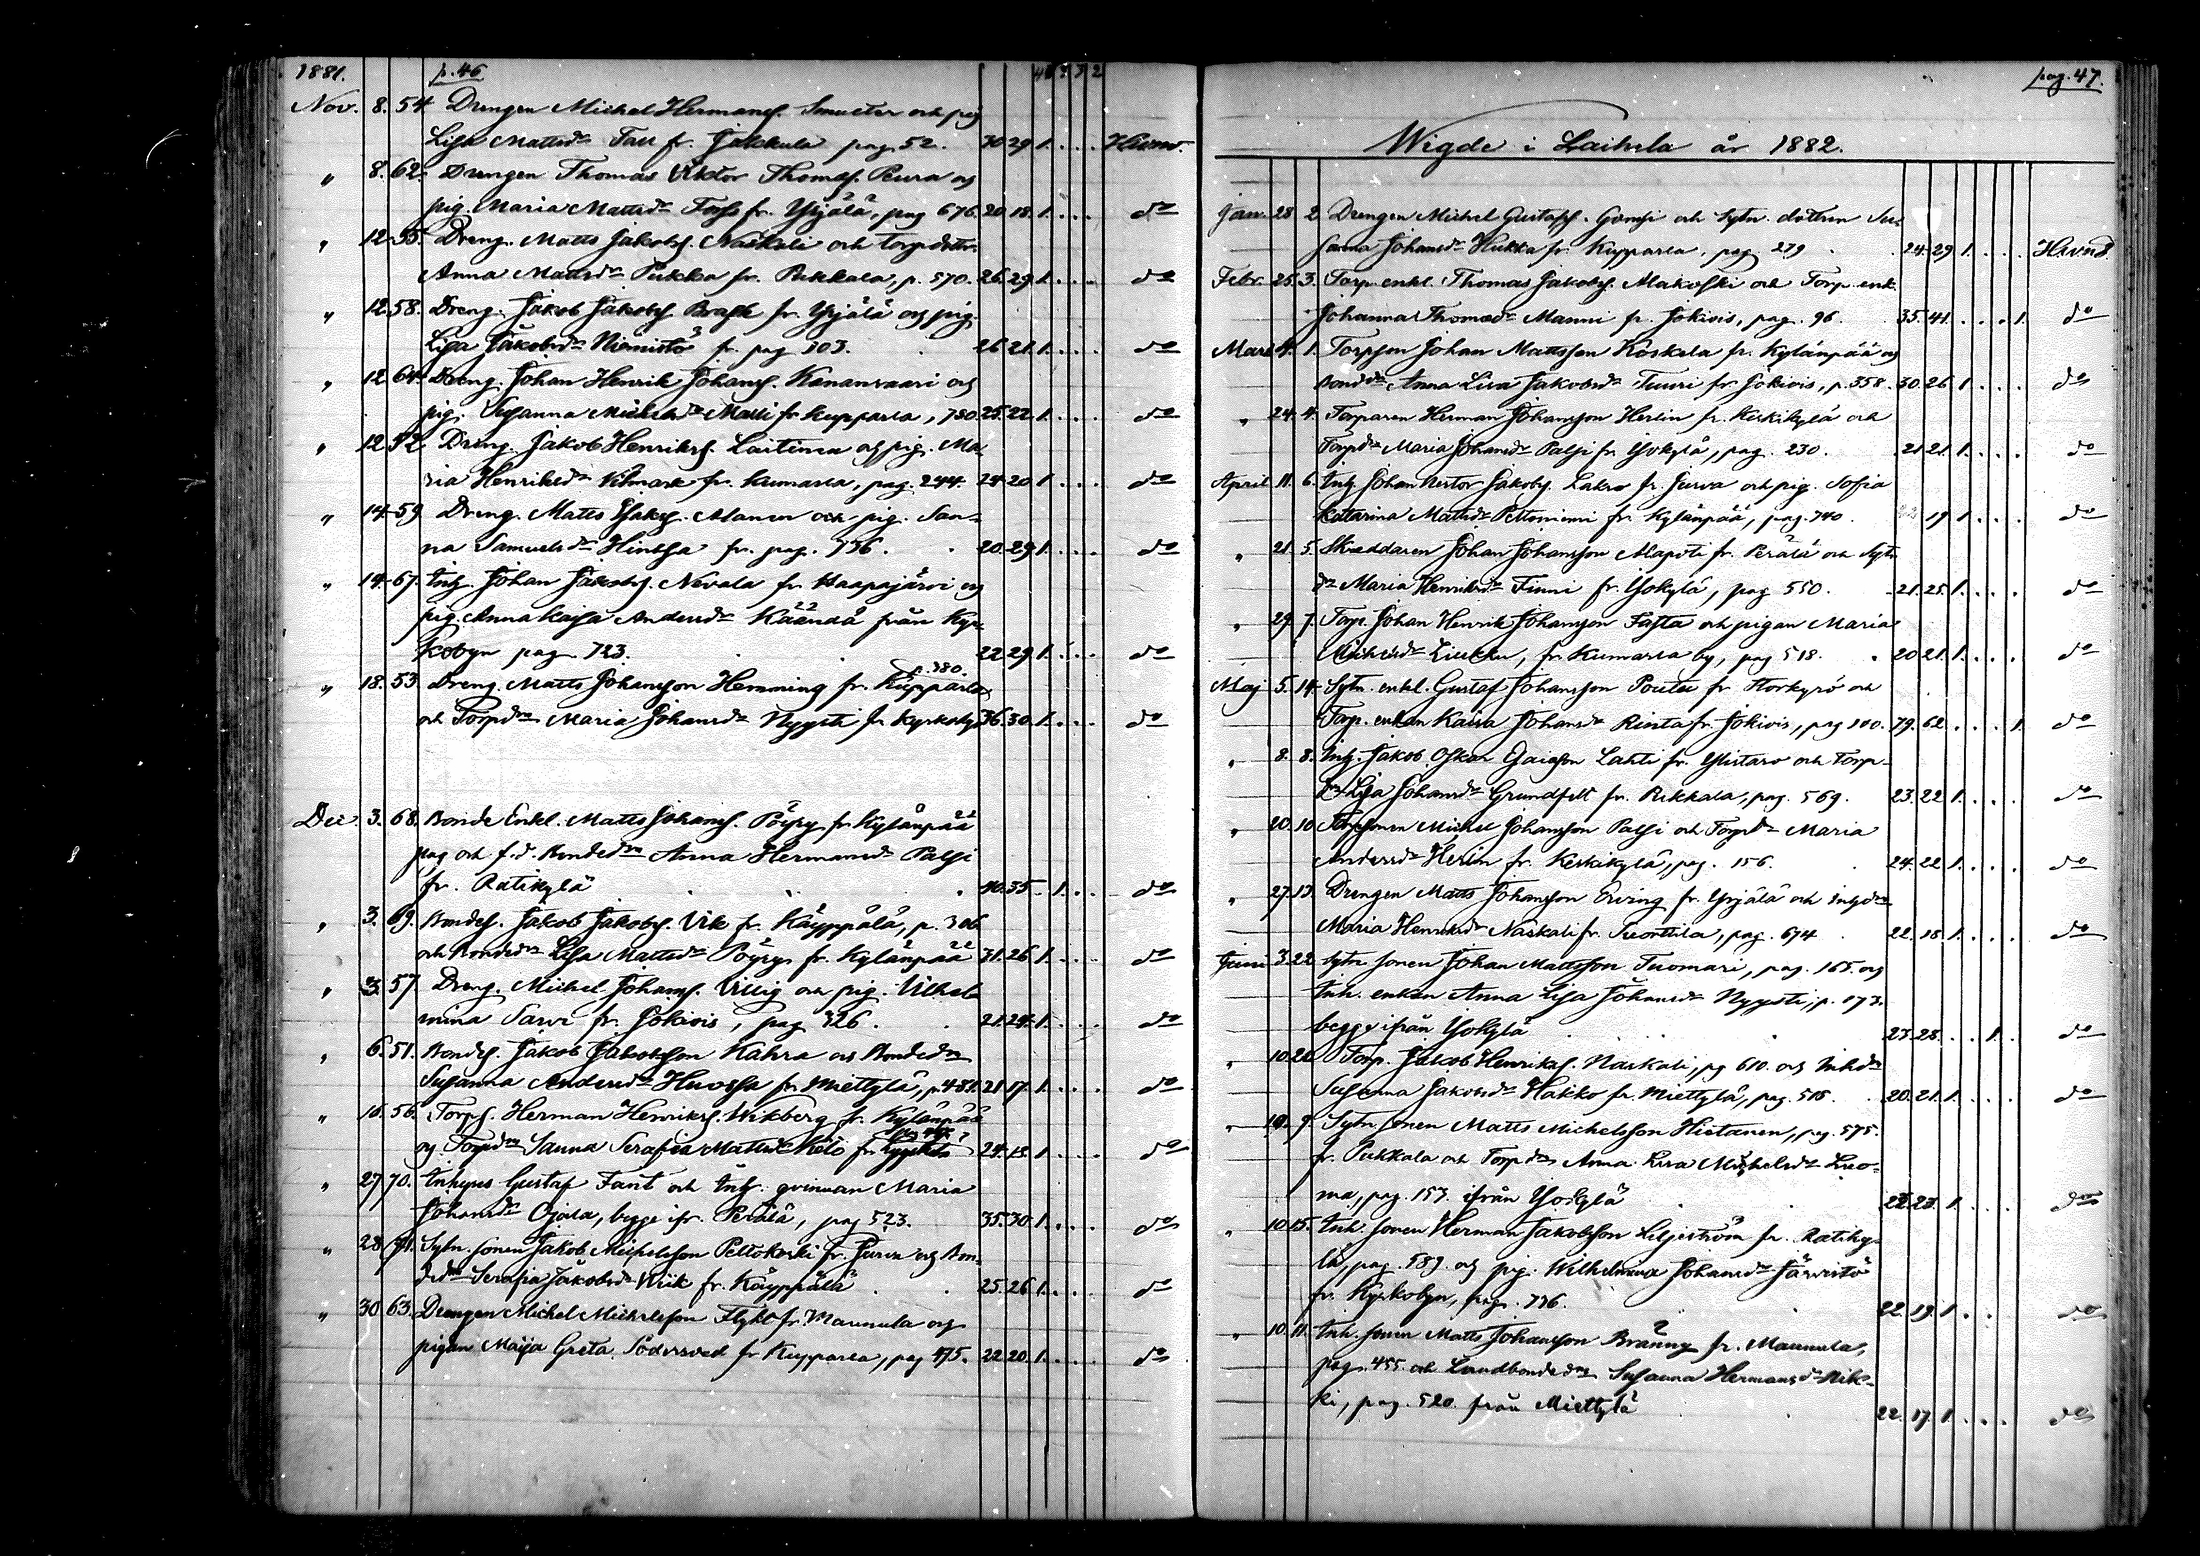 1881. p. 46
Nov. 8. 54. Drengen Michel Hermansf. Smucter och pig
Lisa Mattsdr Tau fr. Jakkula pag. 52. 30 29 1
" 8. 62. Drengen Thomas Viktor Thomasf. Peura og
pig. Maria Mattsdr Forss fr. Yrjälä, pag 676. 20 18. 1. do
" 12. 55. Dreng. Matts Jakobsf. Naskali och torpdottr.
Anna Mattsdr Pukka fr. Pukkala, p. 570. 26. 29. 1. do
" 12. 58. Dreng. Jakob Jakobsf. Brask fr. Yrjälä og pig.
Lisa Jakobsdr Niömistö fr. pag 303. 26 21. 1. do
" 12 64. Dreng. Johan Henrik Johansf. Kananvaari og
pig. Susanna Michelsdr Matti fr Kupparla, 780. 25. 22. 1. do
" 12 52. Dreng. Jakob Henriksf. Laitinen og pig. Ma
ria Henriksdr Vilmark fr. Kumarla, pag. 244. 24 20 1 do
" 14. 59 Dreng. Matts Isaksf. Alanen och pig. San-
na Samuelsdr Hintsa fr. pag. 736. 20. 29. 1. do
" 14. 67. Inh. Johan Jakobsf. Nevala fr. Haapajärvi og
pig. Anna Kajsa Andersdr Käändä från Kyr-
kobyn pag. 723. 22 29 1. do
p. 380.
" 18. 53 Dreng. Matts Johansson Hemming fr. Kupparla
och Torpdr Maria Johansdr Nygsti fr Kyrkoby 36. 30. 1. do
Dec. 3. 68. Bonde Enkl. Matts Johansf. Pöyry fr Kylänpää
pag och f.d. Bondedr Anna Hermansdr Palsi
fr. Ratikylä 40. 35. 1. do
" 3. 69. Bondes. Jakob Jakobsf. Vik fr. Käyppälä, p. 306
och Bondedr Lisa Mattsdr Pöyry fr. Kylänpää 31. 26 1. do
" 3. 57. Dreng. Michel Johansf. Villig och pig. Vilhel
mina Sarvi fr. Jokivis, pag 326. 21. 24. 1. do
" 6. 51. Bondes. Jakob Jakobsson Kahra och Bondedr
Susanna Andersdr Huossa fr. Miettylä, p. 481. 21 17. 1. do
" 16. 56. Torps. Herman Henriksf. Wikberg fr. Kylänpää
og Torpdr Sanna Serafia Mattsdr Kelo fr. 24. 18. 1. do
" 27 70. Inhyses Gustaf Fant och Inh. qvinnan Maria
Johansdr Ojala, begge ifr. Perälä, pag 523. 35. 30. 1. do
" 28. 71. Sytn. sonen Jakob Michelsson Peltokoski fr. Jurva og Bon-
dedr Serafia Jakobsdr Wik fr. Käyppälä 25. 26 1. do
" 30 63. Drengen Michel Michelsson Flykt fr. Maunula og
pigan Maija Greta Södersved fr Kupparla, pag 475. 22 20. 1. do
pag. 47.
Wigde i Laihela år 1882.
Jan. 28. 2. Drengen Michel Gustafsf. Gamsi och Sytn. dottren Su-
sanna Johansdr Hukka fr. Kupparla, pag 279 24. 29 1.
Febr. 25. 3. Torp. enkl. Thomas Jakobsf. Makoski och Torp. enk.
Johanna Thomasdr Manni fr. Jokivis, pag. 96. 35. 41. 1. do
Mars 4. 1. Torpson Johan Mattsson Koskela fr. Kylänpää og
bonddr Anna Lisa Jakobsdr Tuuri fr Jokivis, p. 358. 30. 26 1 do
" 24. 4. Torparen Herman Johansson Herlin fr. Keskikylä och
Torpdr Maria Johansdr Palsi fr Isokylä, pag. 230. 21 21 1. do
April 11. 6. Inh. Johan Nestor Jakobsf. Lakso fr. Jurva och pig. Sofia
Katarina Mattsdr Peltoniemi fr. Kylänpää, pag. 740. 19 1. do
" 21. 5. Skreddaren Johan Johansson Alapoti fr. Perälä och Sytn.
dr Maria Henriksdr Finni fr. Isokylä, pag 550. 21. 25. 1. do
" 29. 7. Torp. Johan Henrik Johansson Fasta och pigan Maria
Michelsdr Liukku, fr. Kumarla by, pag 518. 20 21. 1. do
Maj 5. 14. Sytn. enkl. Gustaf Johansson Pouta fr. Storkyrö och
Torp. enkan Kaisa Johansdr Rinta fr. Jokivis, pag 100. 79. 62. 1. do
" 8. 8. Inh. Jakob Oskar Esaiasson Lahti fr. Ylistaro och Torp-
dr Lisa Johansdr Grundfelt fr. Pukkala, pag. 569. 23. 22 1. do
" 20. 10 Torpsonen Michel Johansson Palsi och Torpdr Maria
Andersdr Herlin fr. Keskikylä, pag. 156. 24. 22 1. do
" 27. 13. Drengen Matts Johansson Erving fr. Yrjälä och Inhdr
Maria Henriksdr Naskali fr. Suorttila, pag. 674 22. 18. 1. do
Juni 3. 22 Sytn. sonen Johan Mattsson Tuomari, pag. 165. og
Inh. enkan Anna Lisa Johansdr Nygsti, p. 173.
begge ifrån Isokylä 23. 28. 1. do
" 10. 21 Torp. Jakob Henriksf. Naskali, pg 610. og Inhdr
Susanna Jakobsdr Hakko fr. Miettylä, pag. 515. 20. 21. 1. do
" 10. 9. Sytn. sonen Matts Michelsson Hietanen, pag. 575.
fr. Pukkala och Torpdr Anna Lisa Michelsdr Luo-
ma, pag. 157. ifrån Isokylä 22. 23. 1. do
" 10. 15. Inh. sonen Herman Jakobsson Liljeström fr. Ratiky-
lä, pag. 589. og pig. Wilhelmina Johansdr Järvistö
fr. Kyrkobyn, pag. 736. 22. 19. 1. do
" 10. 11. Inh. sonen Matts Johansson Bränny fr. Maunula,
pag. 455. och Landbondedr Susanna Hermansdr Rik-
ki, pag. 520. från Miettylä 22. 17. 1. do